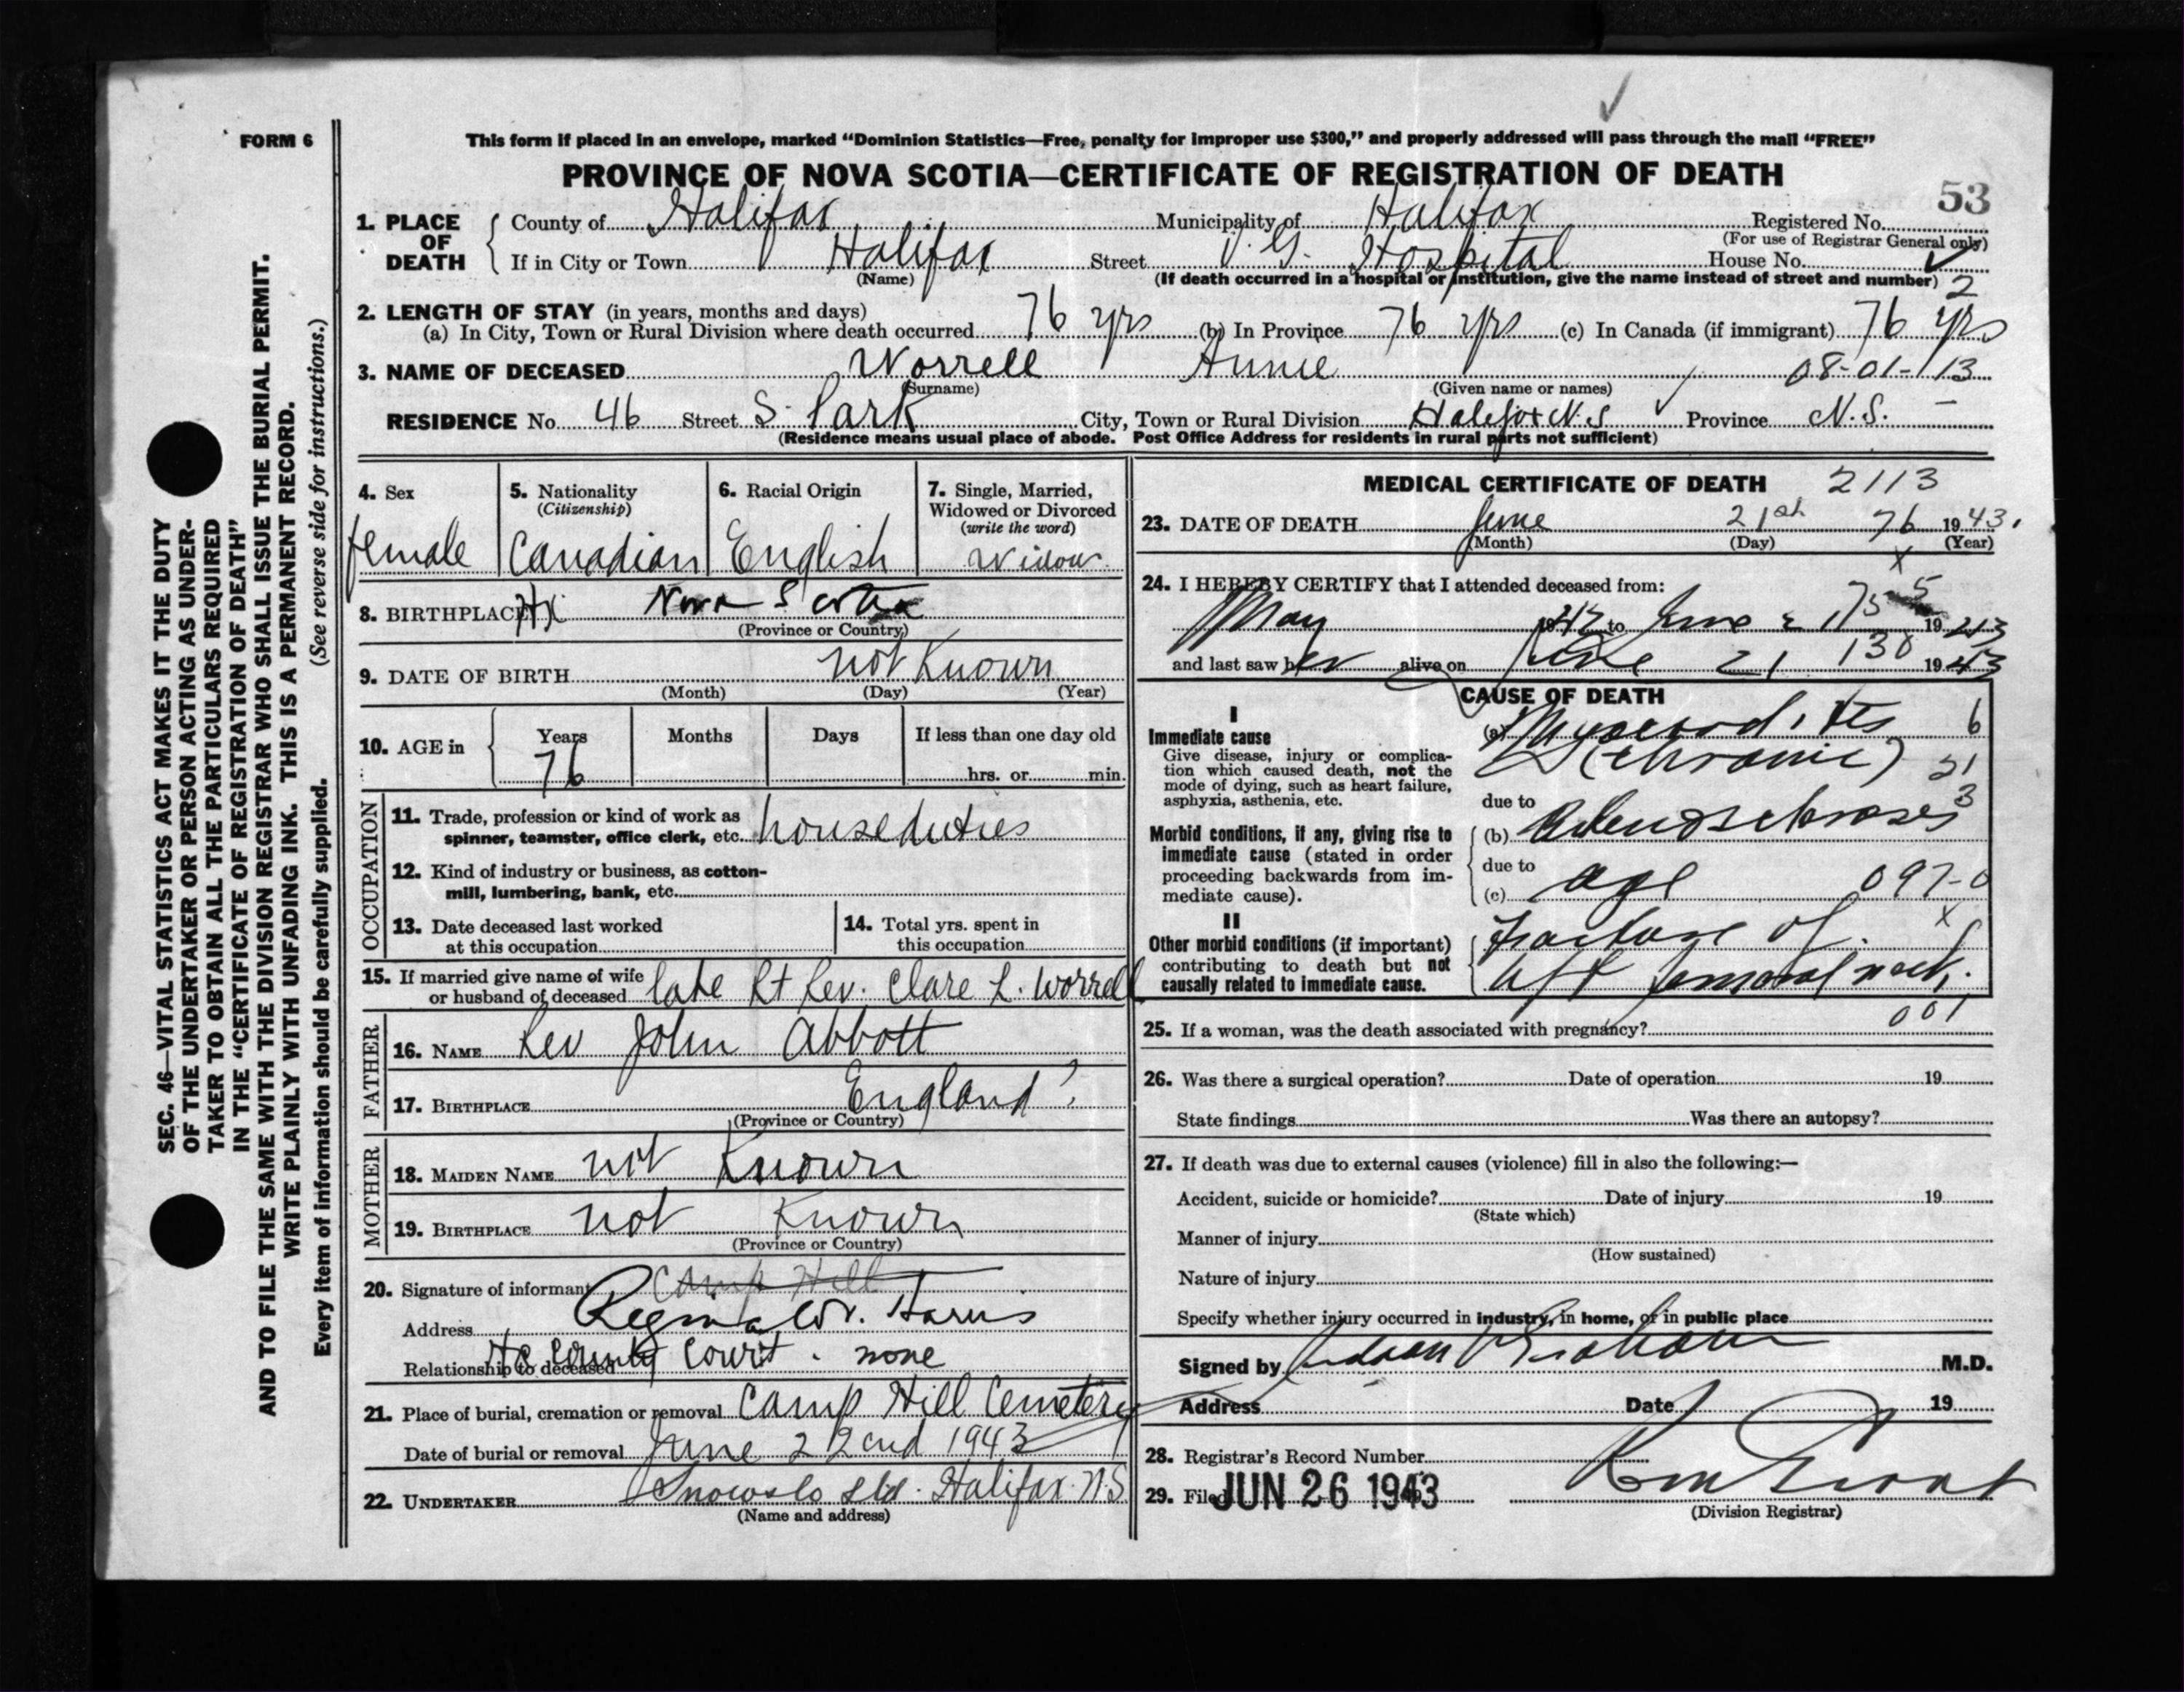 FORM 6
This form if placed in an envelope, marked “Dominion Statistics—Free, penalty for improper use $300,” and properly addressed will pass through the mail “FREE”
PROVINCE OF NOVA SCOTIA—CERTIFICATE OF REGISTRATION OF DEATH
53
1. PLACE OF DEATH County of Halifax Municipality of Halifax Registered No.
(For use of Registrar General only)
If in City or Town Halifax Street V. G. Hospital House No.
(Name) (If death occurred in a hospital or institution, give the name instead of street and number) 2
2. LENGTH OF STAY (in years, months and days)
(a) In City, Town or Rural Division where death occurred 76 yrs (b) In Province 76 yrs (c) In Canada (if immigrant) 76 yrs
3. NAME OF DECEASED Worrell Annie 08-01-113
(Surname) (Given name or names)
RESIDENCE No. 46 Street S. Park City, Town or Rural Division Halifax N.S Province N.S.
(Residence means usual place of abode. Post Office Address for residents in rural parts not sufficient)
4. Sex
female
5. Nationality
(Citizenship)
Canadian
6. Racial Origin
English
7. Single, Married,
Widowed or Divorced
(write the word)
Widow
8. BIRTHPLACE Hx Nova Scotia
(Province or Country)
9. DATE OF BIRTH not Known
(Month) (Day) (Year)
10. AGE in Years Months Days If less than one day old
76 hrs. or min.
OCCUPATION
11. Trade, profession or kind of work as
spinner, teamster, office clerk, etc. house duties
12. Kind of industry or business, as cotton-
mill, lumbering, bank, etc.
13. Date deceased last worked
at this occupation
14. Total yrs. spent in
this occupation
15. If married give name of wife
or husband of deceased late Rt Rev. Clare L. Worrell
FATHER
16. NAME Rev John Abbott
17. BIRTHPLACE England ?
(Province or Country)
MOTHER
18. MAIDEN NAME not Known
19. BIRTHPLACE not Known
(Province or Country)
20. Signature of informant Camp Hill
Reginald V. Harris
Address
Hx County Court. none
Relationship to deceased
21. Place of burial, cremation or removal Camp Hill Cemetery
Date of burial or removal June 22nd 1943
22. UNDERTAKER Snows Ltd. Halifax N.S
(Name and address)
MEDICAL CERTIFICATE OF DEATH 2113
23. DATE OF DEATH June 21st 76 1943.
(Month) (Day) (Year)
24. I HEREBY CERTIFY that I attended deceased from:
May 1943 to June 1943
and last saw her alive on June 21 130 1943
CAUSE OF DEATH
I
Immediate cause
Give disease, injury or complica-
tion which caused death, not the
mode of dying, such as heart failure,
asphyxia, asthenia, etc.
(a) Myocarditis 6
(chronic) 21
due to 3
Morbid conditions, if any, giving rise to
immediate cause (stated in order
proceeding backwards from im-
mediate cause).
(b)
due to
(c) age 097-0
II
Other morbid conditions (if important)
contributing to death but not
causally related to immediate cause.
Fracture of
left femoral neck.
25. If a woman, was the death associated with pregnancy? 001
26. Was there a surgical operation? Date of operation 19
State findings Was there an autopsy?
27. If death was due to external causes (violence) fill in also the following:—
Accident, suicide or homicide? Date of injury 19
(State which)
Manner of injury
(How sustained)
Nature of injury
Specify whether injury occurred in industry, in home, or in public place
Signed by Judson V Graham M.D.
Address Date 19
28. Registrar's Record Number
29. Filed JUN 26 1943
(Division Registrar)
SEC. 46—VITAL STATISTICS ACT MAKES IT THE DUTY
OF THE UNDERTAKER OR PERSON ACTING AS UNDER-
TAKER TO OBTAIN ALL THE PARTICULARS REQUIRED
IN THE “CERTIFICATE OF REGISTRATION OF DEATH”
AND TO FILE THE SAME WITH THE DIVISION REGISTRAR WHO SHALL ISSUE THE BURIAL PERMIT.
WRITE PLAINLY WITH UNFADING INK. THIS IS A PERMANENT RECORD.
Every item of information should be carefully supplied. (See reverse side for instructions.)